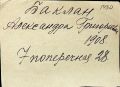 1930
Баклан
Александра Григорьевна
1908
7 поперечная 28